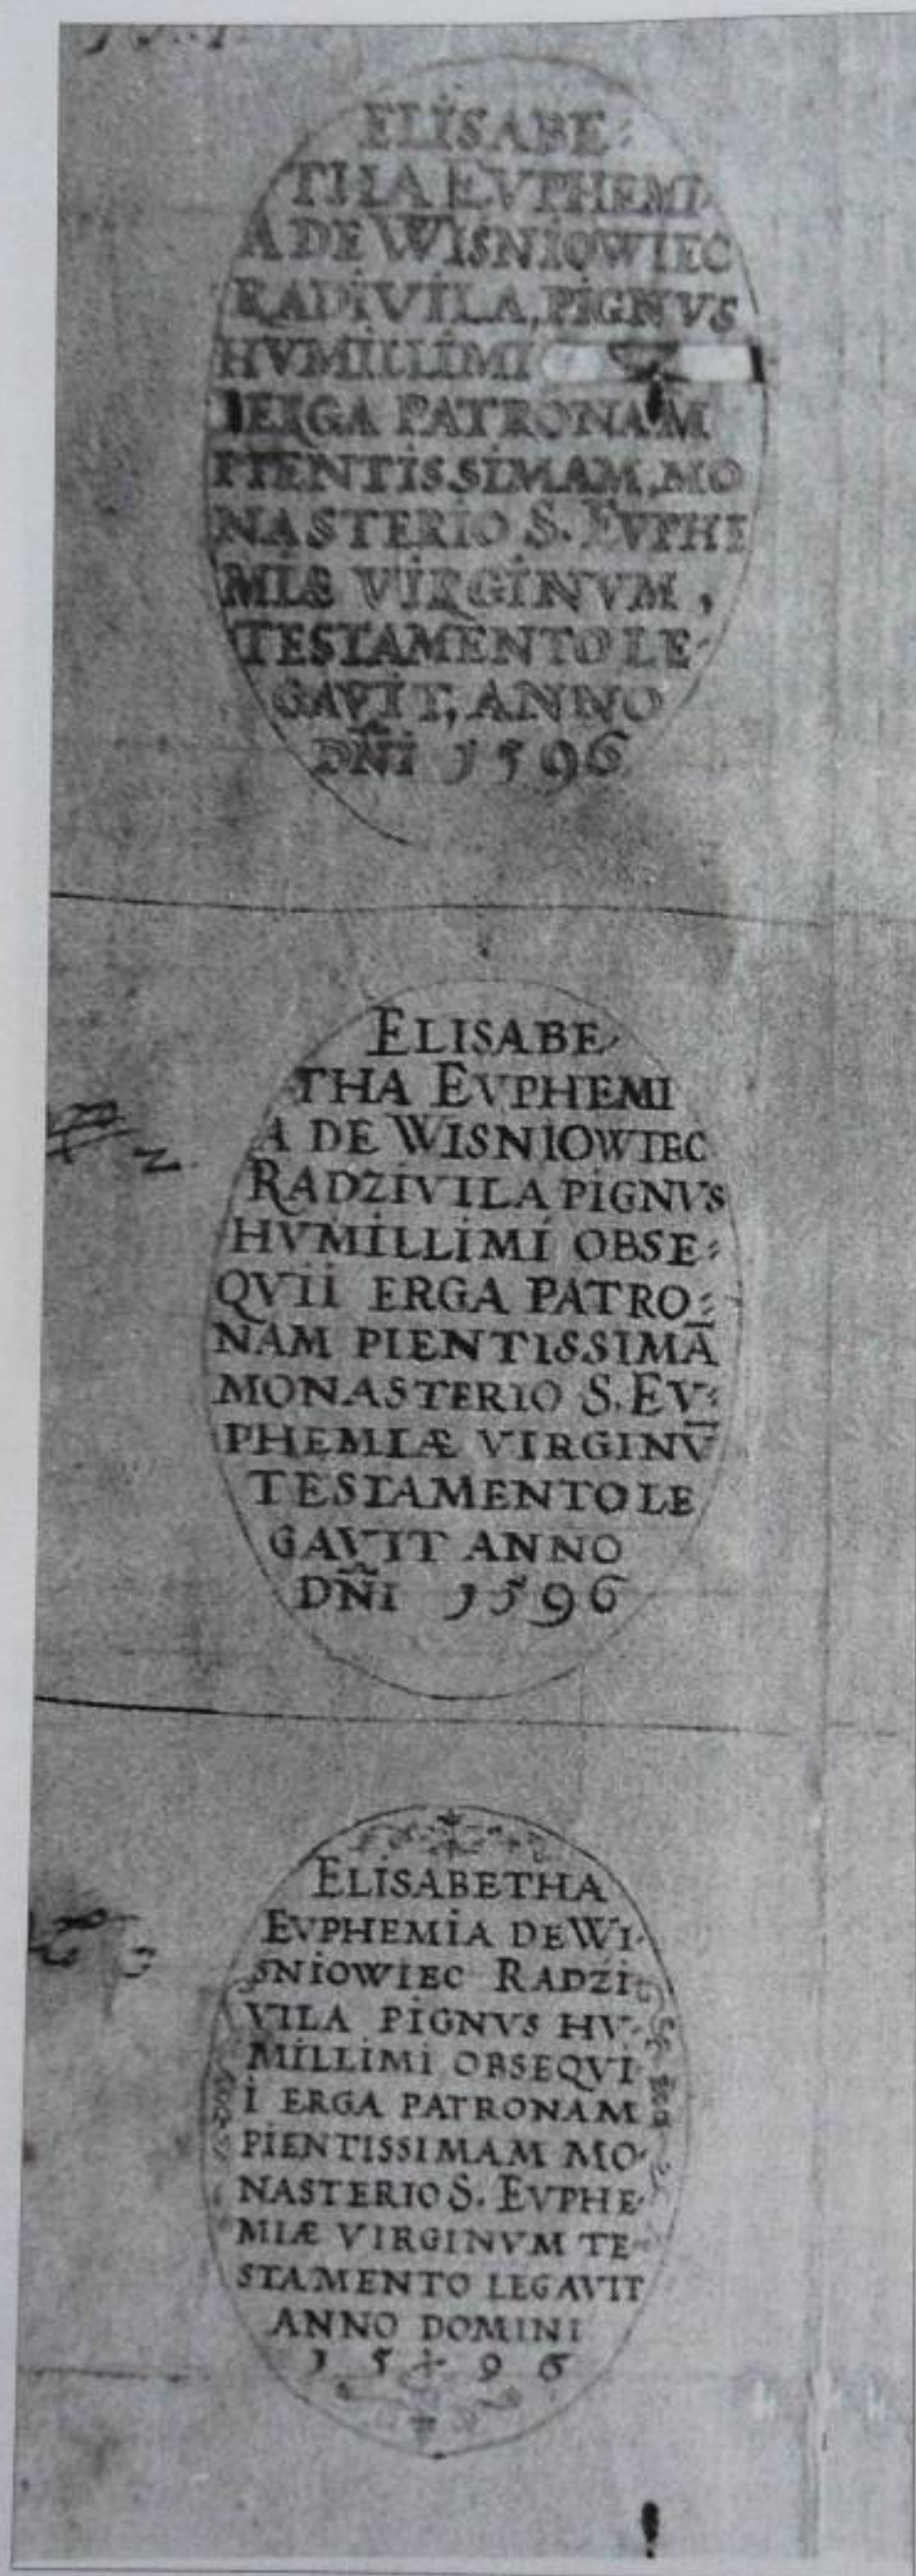 ELISABE-
THA EVPHEMI
A DE WISNIOWIEC
RADIVILA, PIGNVS
HVMILLIMI
ERGA PATRONAM
PIENTISSIMAM, MO
NASTERIO S. EVPHI
MIÆ VIRGINVM,
TESTAMENTO LE-
GAVIT, ANNO
DÑI 1596
ELISABE-
THA EVPHEMI
A DE WISNIOWIEC
RADZIVILA PIGNVS
HVMILLIMI OBSE-
QVII ERGA PATRO-
NAM PIENTISSIMĀ
MONASTERIO S. EV-
PHEMIÆ VIRGINV̄
TESTAMENTO LE
GAVIT ANNO
DÑI 1596
ELISABETHA
EVPHEMIA DE WI-
SNIOWIEC RADZI-
VILA PIGNVS HV-
MILLIMI OBSEQVI
I ERGA PATRONAM
PIENTISSIMAM MO-
NASTERIO S. EVPHE-
MIÆ VIRGINVM TE-
STAMENTO LEGAVIT
ANNO DOMINI
15+96